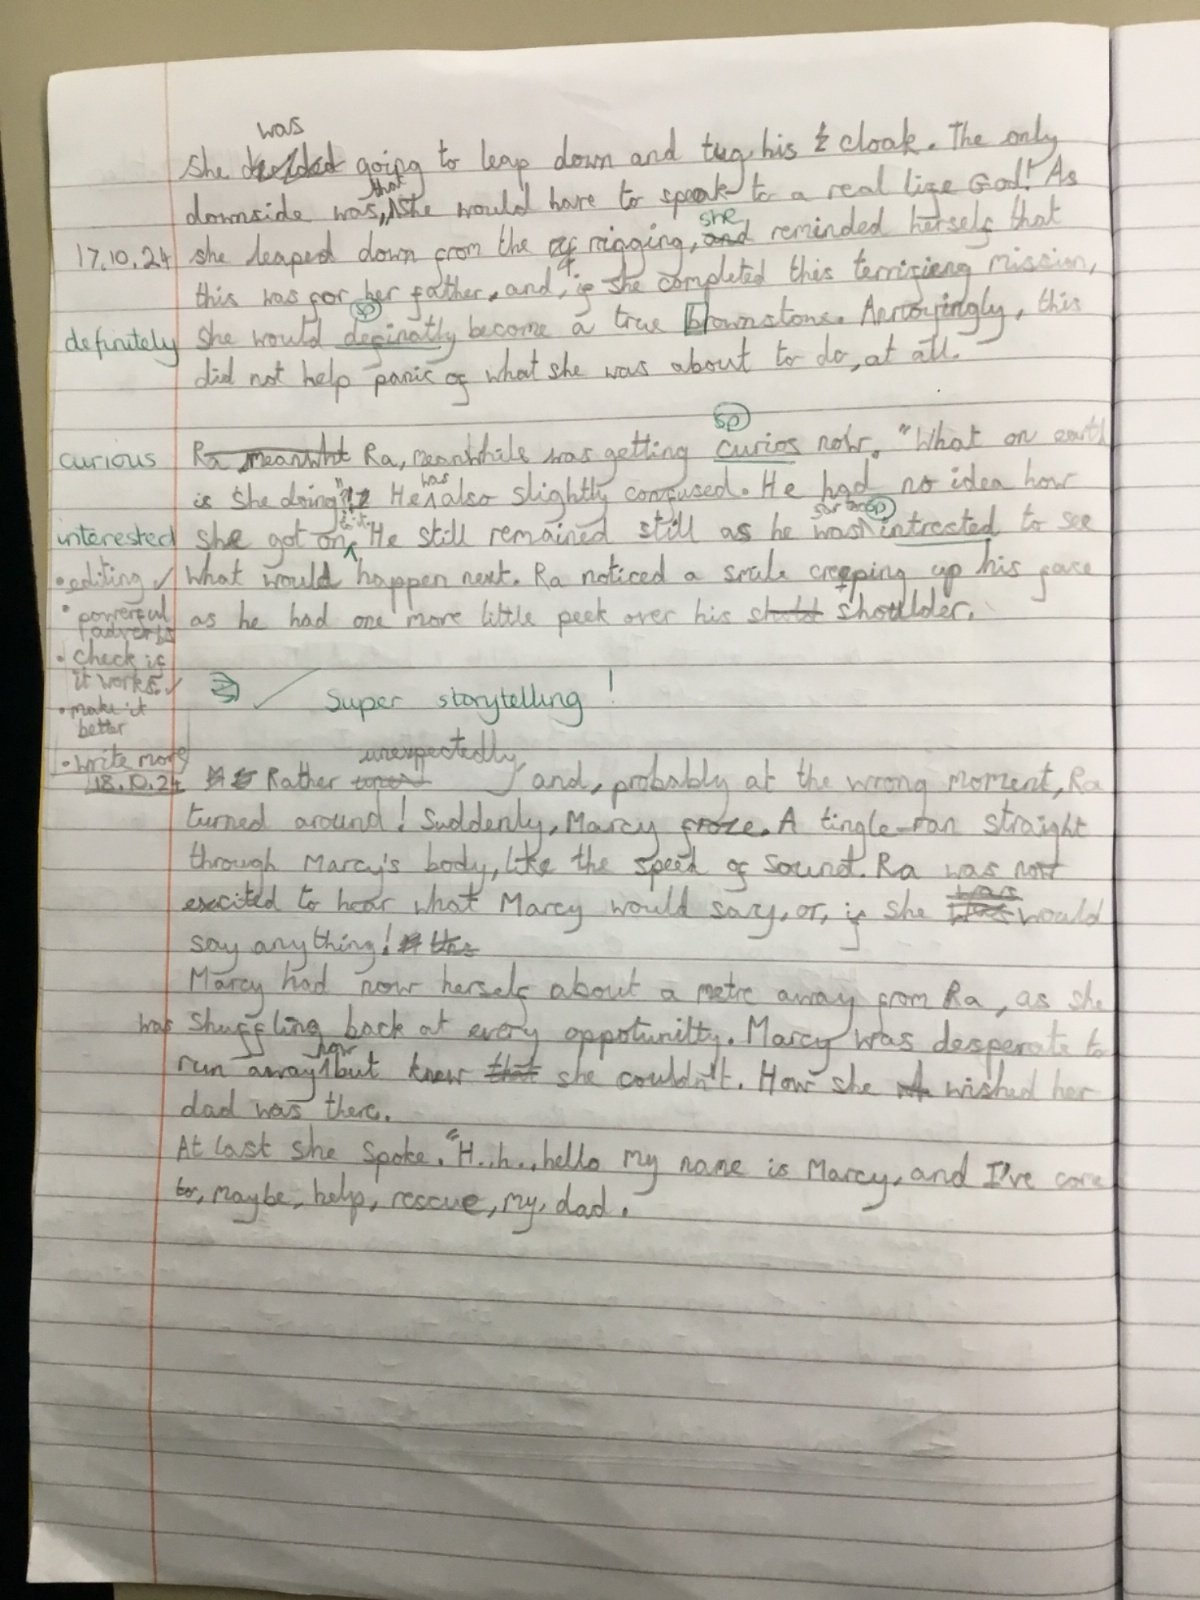 was
She decided going to leap down and tug his cloak. The only
that
downside was, she would have to speak to a real life God! As
she
17.10.24 she leaped down from the rigging, and reminded herself that
this was for her father, and, if she completed this terrifieng mission,
sp
definitely she would definatly become a true brownstone. Annoyingly, this
did not help panic of what she was about to do, at all.
sp
curious Ra meanwht Ra, meanwhile was getting curios now. "What on earth
was
is she doing"!? He also slightly confused. He had no idea how
sp
interested she got on He still remained still as he was intrested to see
• editing ✓ what would happen next. Ra noticed a smile creeping up his face
• powerful adverbs as he had one more little peek over his shuld shoulder.
• check if
it works ✓
Super storytelling!
• make it
better
• write more
unexpectedly,
18.10.24 Rather and, probably at the wrong moment, Ra
turned around! Suddenly, Marcy froze. A tingle ran straight
through Marcy's body, like the speed of sound. Ra was now
excited to hear what Marcy would say, or, if she was would
say anything! the
Marcy had now herself about a metre away from Ra, as she
was shuffling back at every oppotunitty. Marcy was desperate to
now
run away but knew that she couldn't. How she wished her
dad was there.
At last she spoke. "H..h..hello my name is Marcy, and I've come
to, maybe, help, rescue, my, dad.